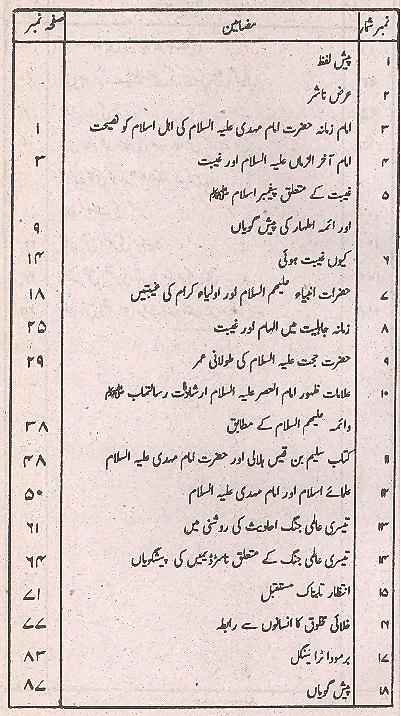 نمبر شمار مضامین صفحہ نمبر
۱ پیش لفظ
۲ عرض ناشر
۳ امام زمانہ حضرت امام مہدی علیہ السلام کی اہل اسلام کو نصیحت ۱
۴ امام آخر الزماں علیہ السلام اور غیبت ۳
۵ غیبت کے متعلق پیغمبر اسلام ﷺ
اور ائمہ اطہار کی پیش گویاں ۹
۶ کیوں غیبت ہوئی ۱۴
۷ حضرات انبیاء علیہم السلام اور اولیاء کرام کی غیبتیں ۱۸
۸ زمانہ جاہلیت میں الہام اور غیبت ۲۵
۹ حضرت حجت علیہ السلام کی طولانی عمر ۲۹
۱۰ علامات ظہور امام العصر علیہ السلام ارشادات رسالتماب ﷺ
وائمہ علیہم السلام کے مطابق ۳۸
۱۱ کتاب سلیم بن قیس ہلالی اور حضرت امام مہدی علیہ السلام ۴۸
۱۲ علمائے اسلام اور امام مہدی علیہ السلام ۵۰
۱۳ تیسری عالمی جنگ احادیث کی روشنی میں ۶۱
۱۴ تیسری عالمی جنگ کے متعلق ناسٹرڈیمس کی پیشگویاں ۶۴
۱۵ انتظار تابناک مستقبل ۷۱
۱۶ خلائی مخلوق کا انسانوں سے رابطہ ۷۷
۱۷ برمودا ٹرائینگل ۸۳
۱۸ پیش گویاں ۸۷